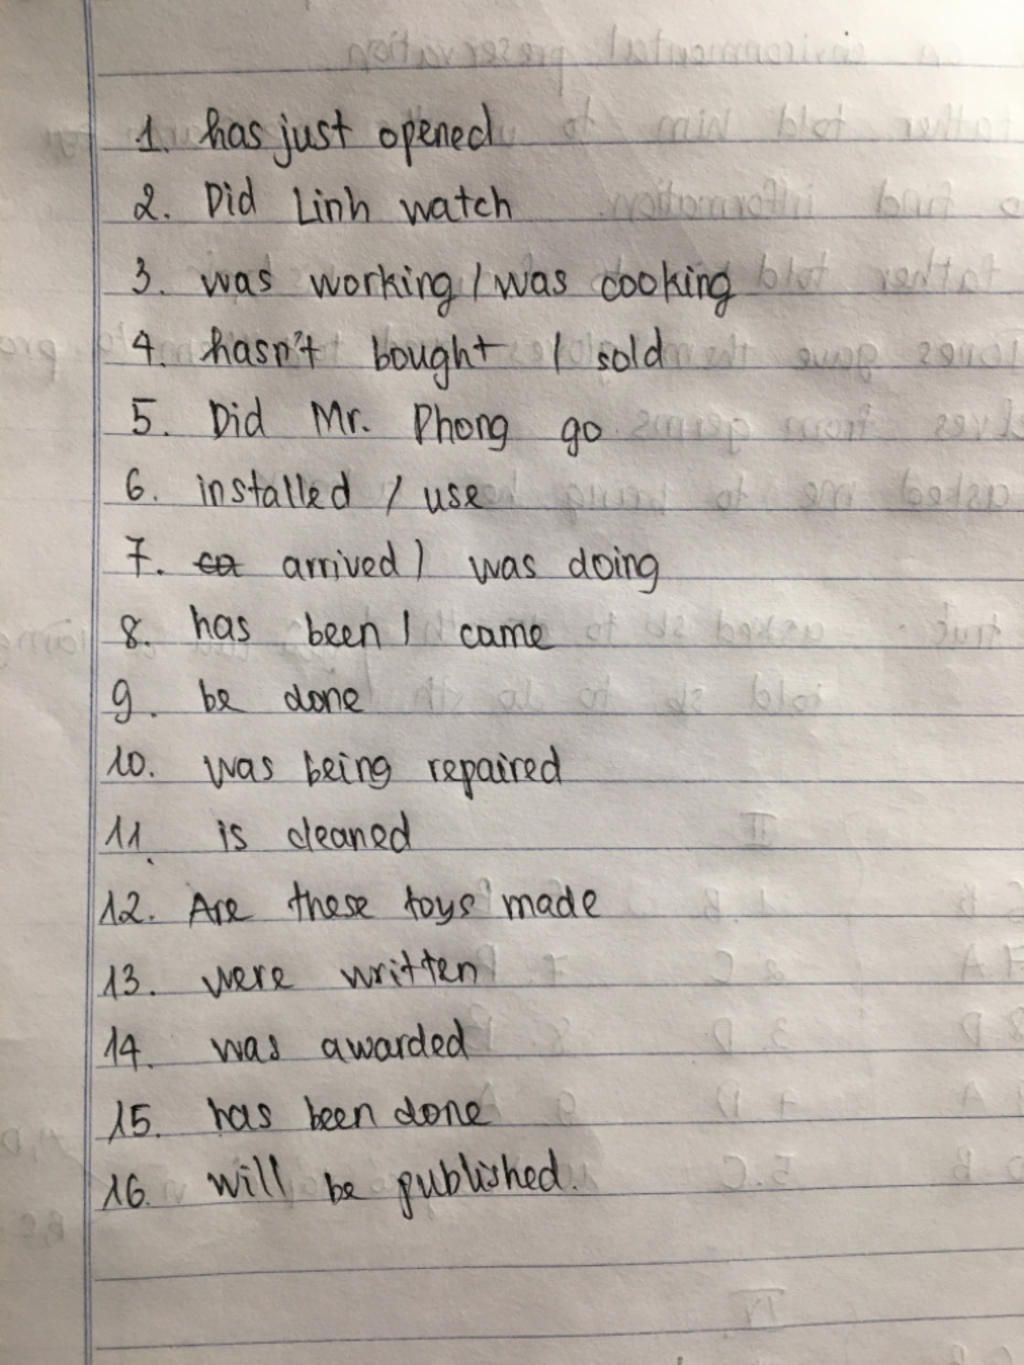 1. has just opened
2. Did Linh watch
3. was working / was cooking
4. hasn't bought / sold
5. Did Mr. Phong go
6. installed / use
7. ca arrived / was doing
8. has been / came
9. be done
10. was being repaired
11. is cleaned
12. Are these toys made
13. were written
14. was awarded
15. has been done
16. will be published.